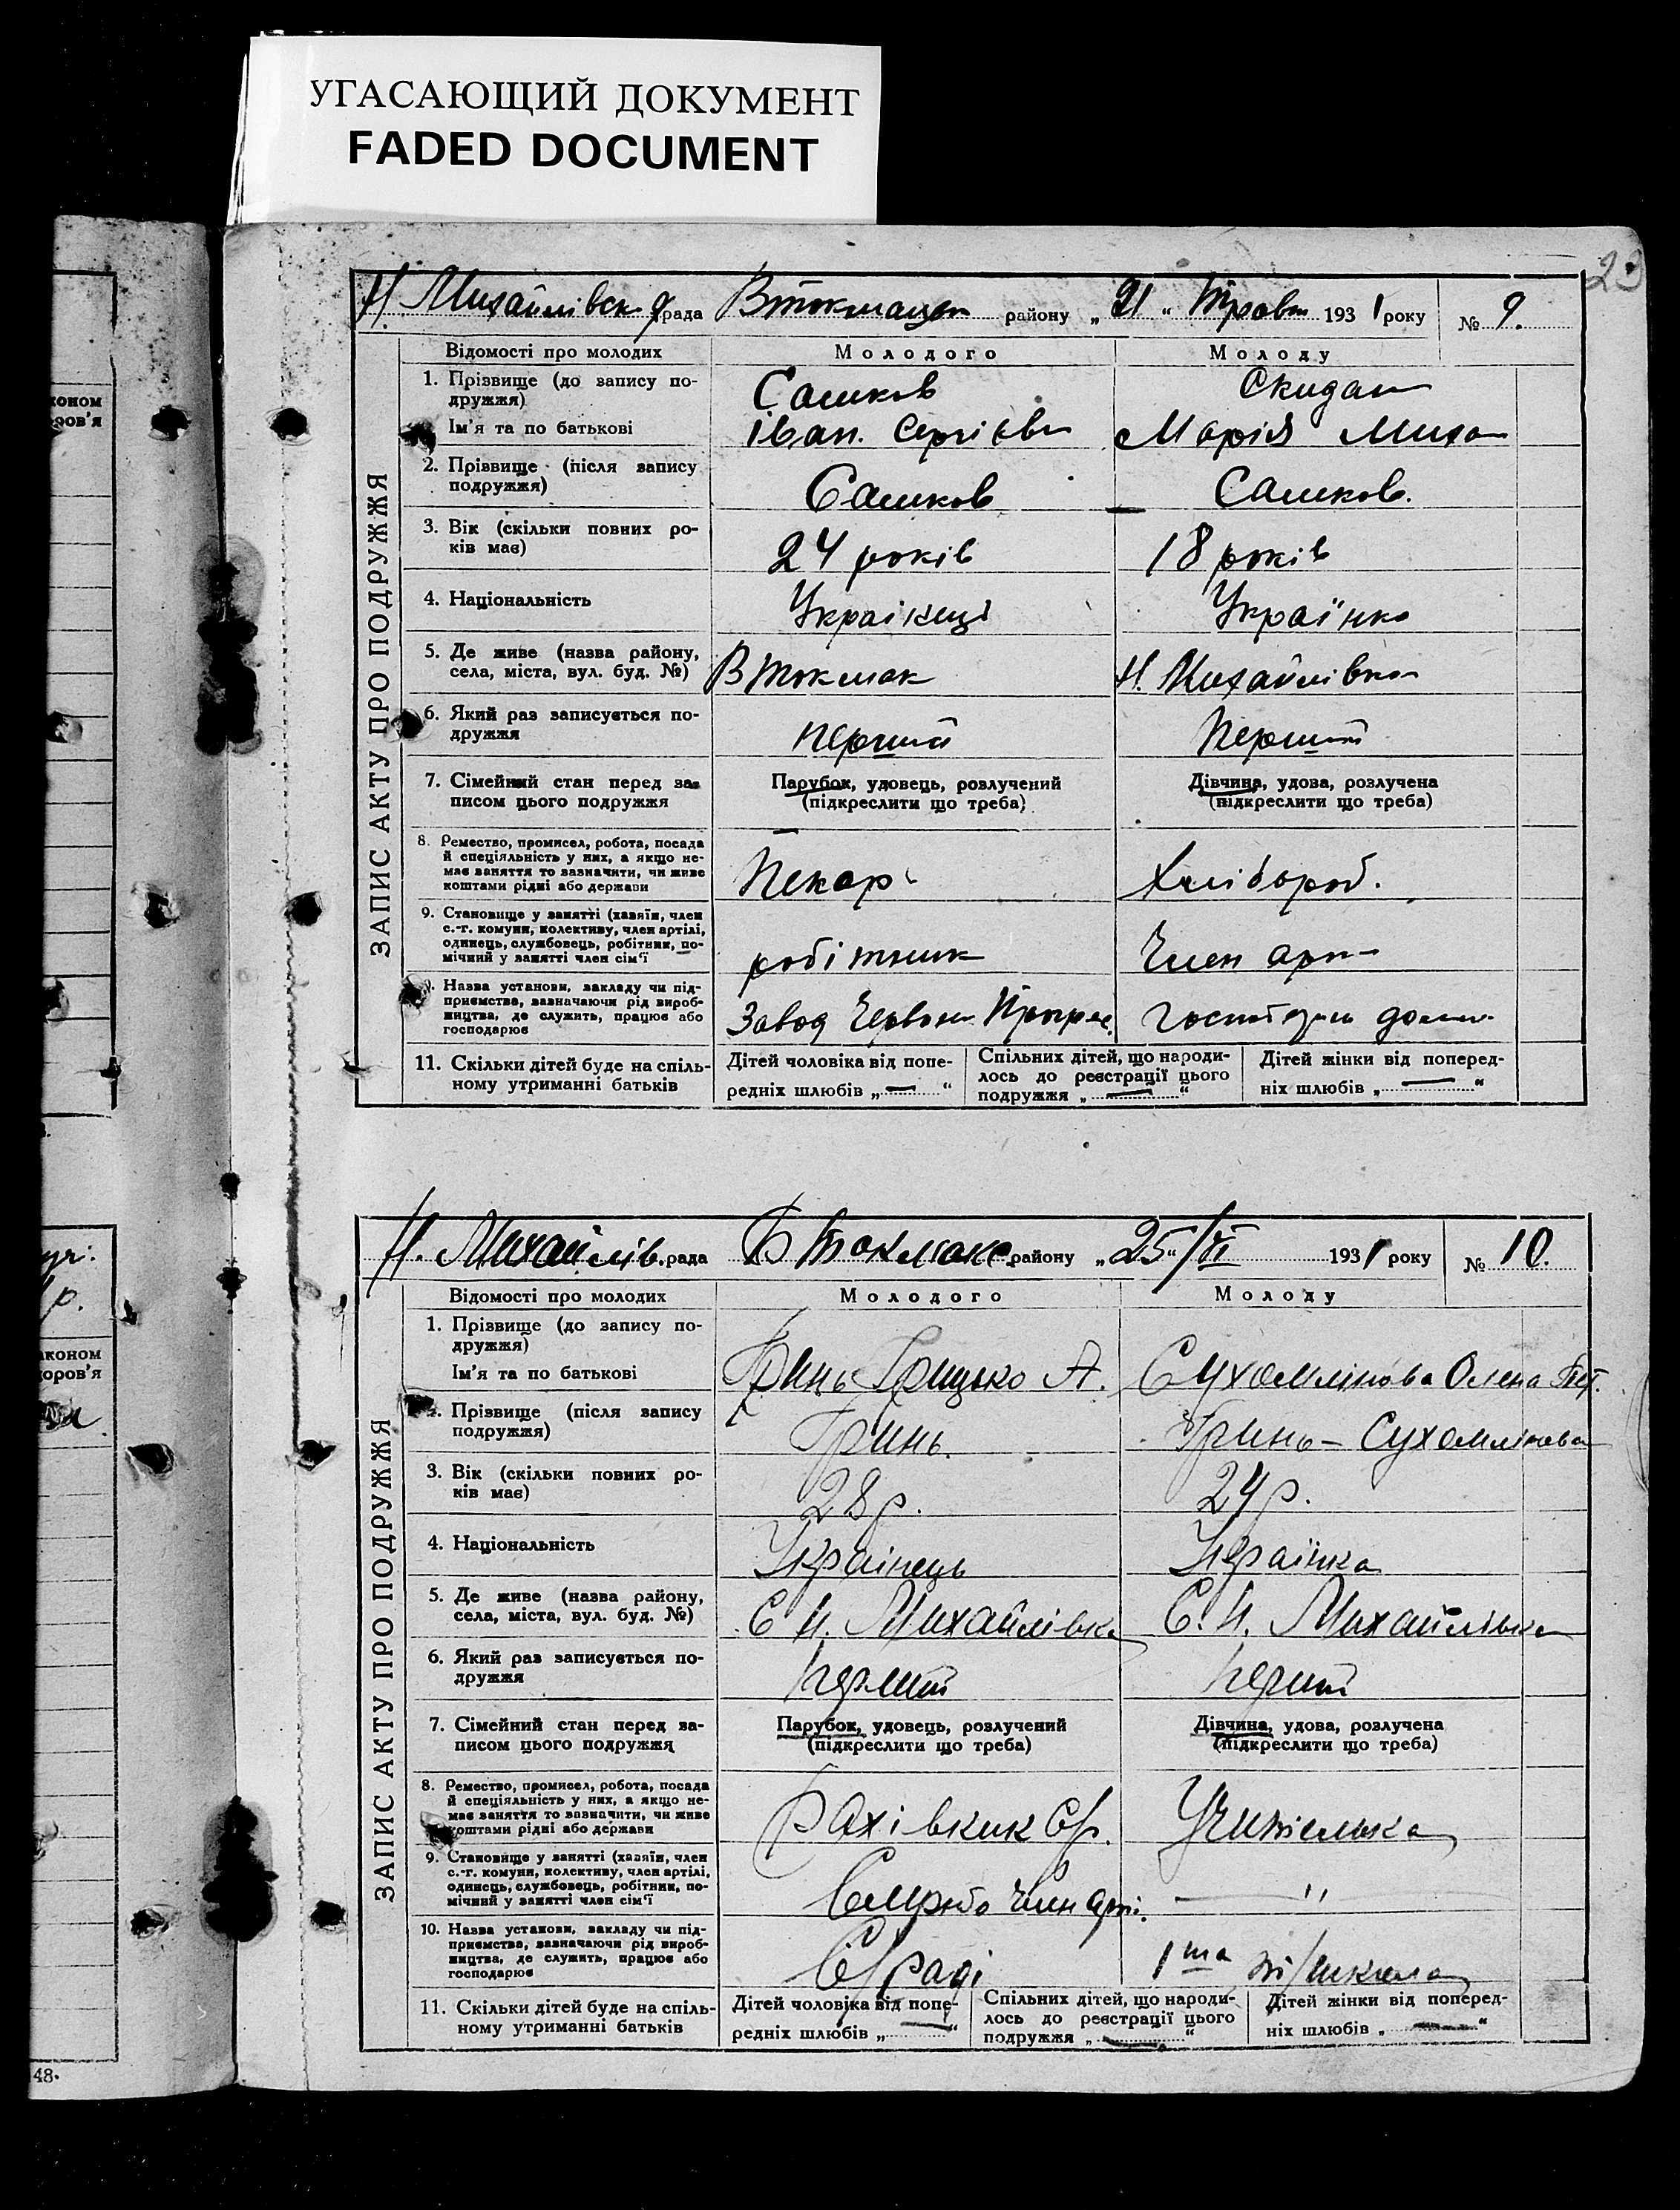 УГАСАЮЩИЙ ДОКУМЕНТ
FADED DOCUMENT
23
Н. Михайлівськ рада В токмацьк району „21“ Травн 1931 року № 9.
ЗАПИС АКТУ ПРО ПОДРУЖЖЯ
Відомості про молодих Молодого Молоду
1. Прізвище (до запису по-
дружжя) Сашков Скидан
Ім'я та по батькові Іван. Сергієв Марія Миха
2. Прізвище (після запису
подружжя) Сашков Сашков.
3. Вік (скільки повних ро-
ків має) 24 років 18 років
4. Національність Украінець Українка
5. Де живе (назва району,
села, міста, вул. буд. №) В Токмак Н. Михайлівка
6. Який раз записується по-
дружжя перший Перший
7. Сімейний стан перед за-
писом цього подружжя
Парубок, удовець, розлучений
(підкреслити що треба)
Дівчина, удова, розлучена
(підкреслити що треба)
8. Ремество, промисел, робота, посада
й спеціяльність у них, а якщо не-
має заняття то зазначити, чи живе
коштами рідні або держави
Пекар Хлібороб.
9. Становище у занятті (хазяїн, член
с.-г. комуни, колективу, член артілі,
одинець, службовець, робітник, по-
мічний у занятті член сім'ї
робітник Член арт
Назва установи, закладу чи під-
приємства, зазначаючи рід вироб-
ництва, де служить, працює або
господарює
Завод Червон Прогрес.
11. Скільки дітей буде на спіль-
ному утриманні батьків
Дітей чоловіка від попе-
редніх шлюбів „—“
Спільних дітей, що народи-
лось до реєстрації цього
подружжя „—“
Дітей жінки від поперед-
ніх шлюбів „—“
Н. Михайлів. рада В Токмакс. району „25“/VI 1931 року № 10.
ЗАПИС АКТУ ПРО ПОДРУЖЖЯ
Відомості про молодих Молодого Молоду
1. Прізвище (до запису по-
дружжя)
Ім'я та по батькові Гринь Грицько А. Сухомлінова Олена Пет.
Прізвище (після запису
подружжя) Гринь. Гринь - Сухомлінова
3. Вік (скільки повних ро-
ків має) 28 р. 24 р.
4. Національність Українець Українка
5. Де живе (назва району,
села, міста, вул. буд. №) С Н. Михайлівка С. Н. Михайлівка
6. Який раз записується по-
дружжя перший перший
7. Сімейний стан перед за-
писом цього подружжя
Парубок, удовець, розлучений
(підкреслити що треба)
Дівчина, удова, розлучена
(підкреслити що треба)
8. Ремество, промисел, робота, посада
й спеціяльність у них, а якщо не-
має заняття то зазначити, чи живе
коштами рідні або держави
Рахівник С/р. Учителька
9. Становище у занятті (хазяїн, член
с.-г. комуни, колективу, член артілі,
одинець, службовець, робітник, по-
мічний у занятті член сім'ї
Службо член арті. — "
10. Назва установи, закладу чи під-
приємства, зазначаючи рід вироб-
ництва, де служить, працює або
господарює
С/раді 1ша школа
11. Скільки дітей буде на спіль-
ному утриманні батьків
Дітей чоловіка від попе-
редніх шлюбів „—“
Спільних дітей, що народи-
лось до реєстрації цього
подружжя „—“
Дітей жінки від поперед-
ніх шлюбів „—“
48.